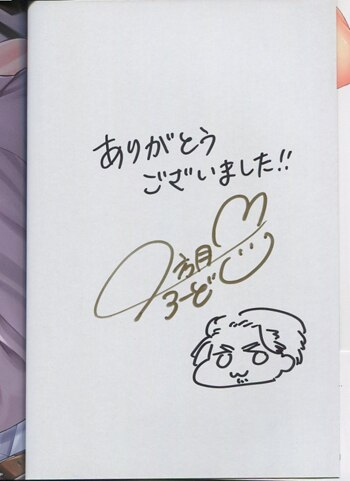 ありがとう
ございました!!
方月
るーど